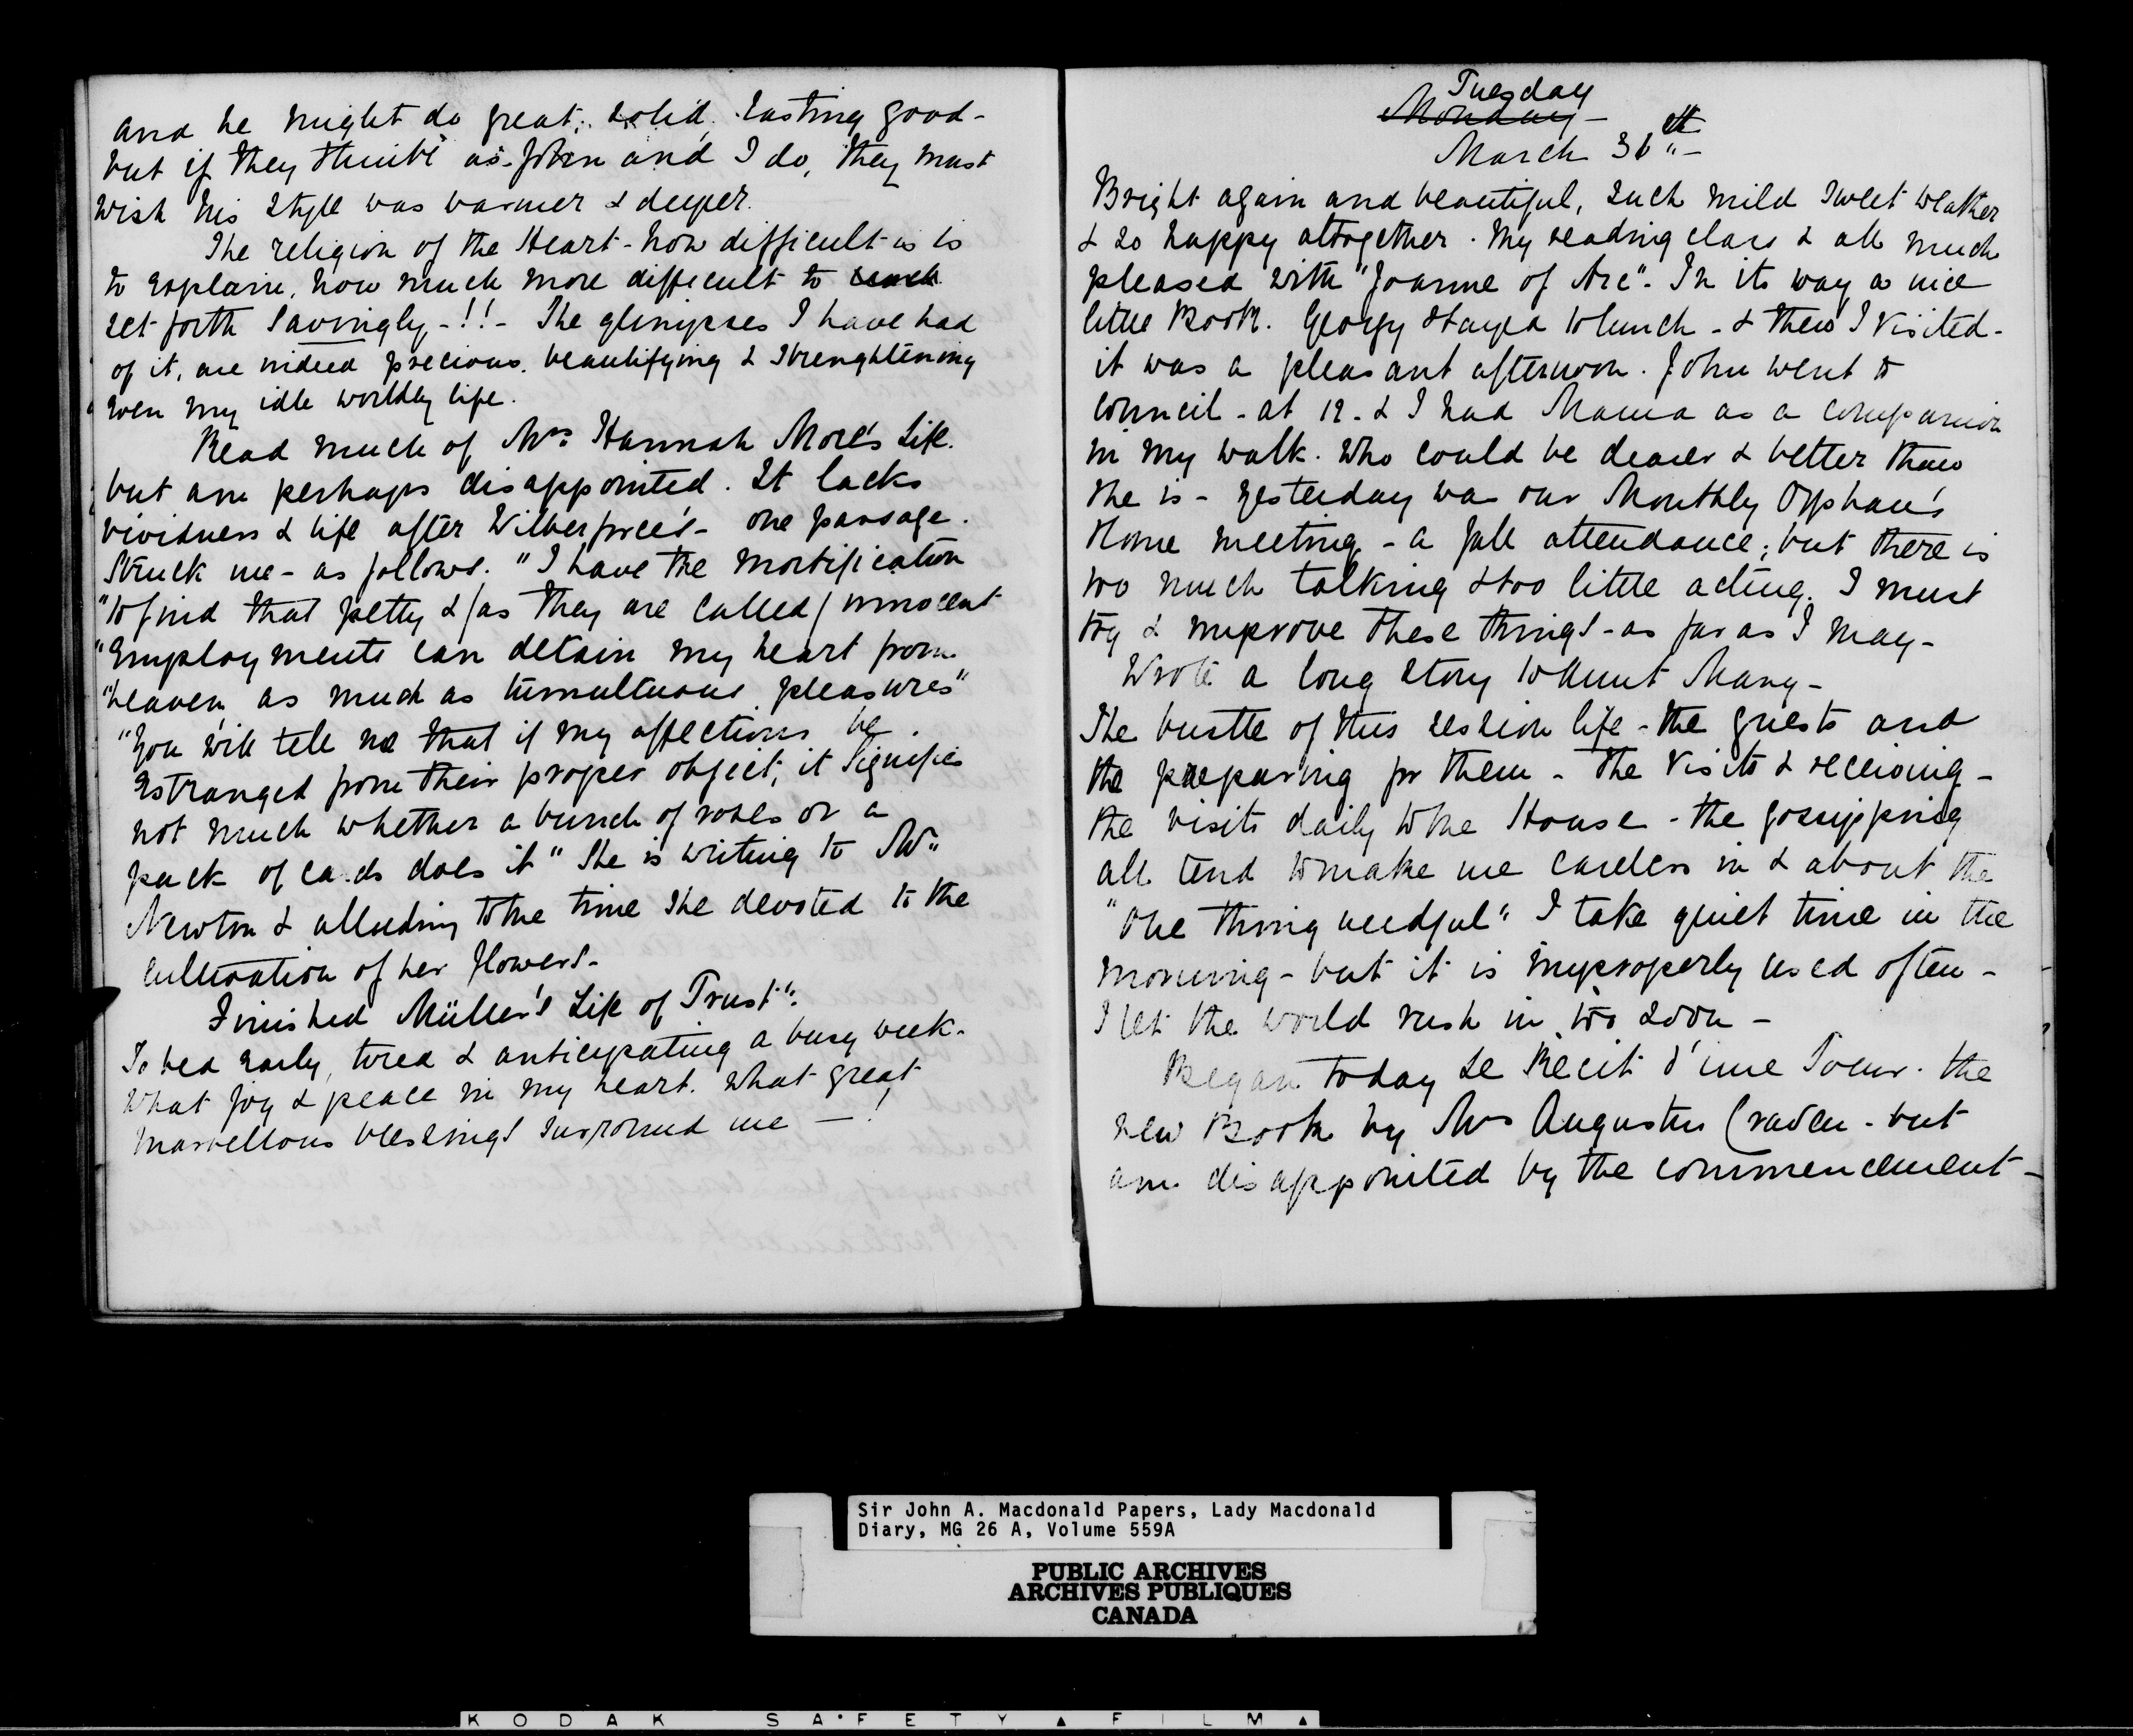 and he might do great, solid, lasting good -
but if they think as John and I do, they must
wish his style was warmer & deeper.
The religion of the Heart - how difficult is is
to explain, how much more difficult to
set forth savingly - !! - The glimpses I have had
of it, are indeed precious, beautifying & strenghtening
even my idle worldly life.
Read much of Mrs Hannah More's Life.
but am perhaps disappointed. It lacks
vividness & life after Wilberforce's - one passage.
struck me - as follows. "I have the mortification
"to find that petty & /as they are called/ innocent
"employments can detain my heart from
"heaven as much as tumultuous pleasures"
"You will tell me that if my affections be
estranged from their proper object, it signifies
not much whether a bunch of roses or a
pack of cards does it" She is writing to Mr
Newton & alluding to the time she devoted to the
cultivation of her flowers -
Finished Müller's Life of Trust".
To bed early, tired & anticipating a busy week.
What joy & peace in my heart. What great
marvellous blessings surround me - !
Tuesday
Monday -
March 31th -
Bright again and beautiful, such mild sweet weather
& so happy altogether. My reading class & all much
pleased with "Joanne of Arc". In its way a nice
little Book. Georgy stayed to lunch - & then I visited -
it was a pleasant afternoon. John went to
Council - at 12 - & I had Mama as a companion
in my walk. Who could be dearer & better than
she is - Yesterday was our Monthly Orphan's
Home meeting - a full attendance; but there is
too much talking & too little acting. I must
try & improve these things - as far as I may -
Wrote a long story to Aunt Mary -
The bustle of this session life - the guests and
the preparing for them - the visits & receiving -
the visits daily to the House - the gossipping
all tend to make me careless in & about the
"One thing needful" I take quiet time in the
morning - but it is improperly used often -
I let the world rush in too soon -
Began today Le Recit d'une Soeur. the
new Book by Mrs Augustus Craven - but
am disappointed by the commencement -
Sir John A. Macdonald Papers, Lady Macdonald
Diary, MG 26 A, Volume 559A
PUBLIC ARCHIVES
ARCHIVES PUBLIQUES
CANADA
KODAK SAFETY FILM